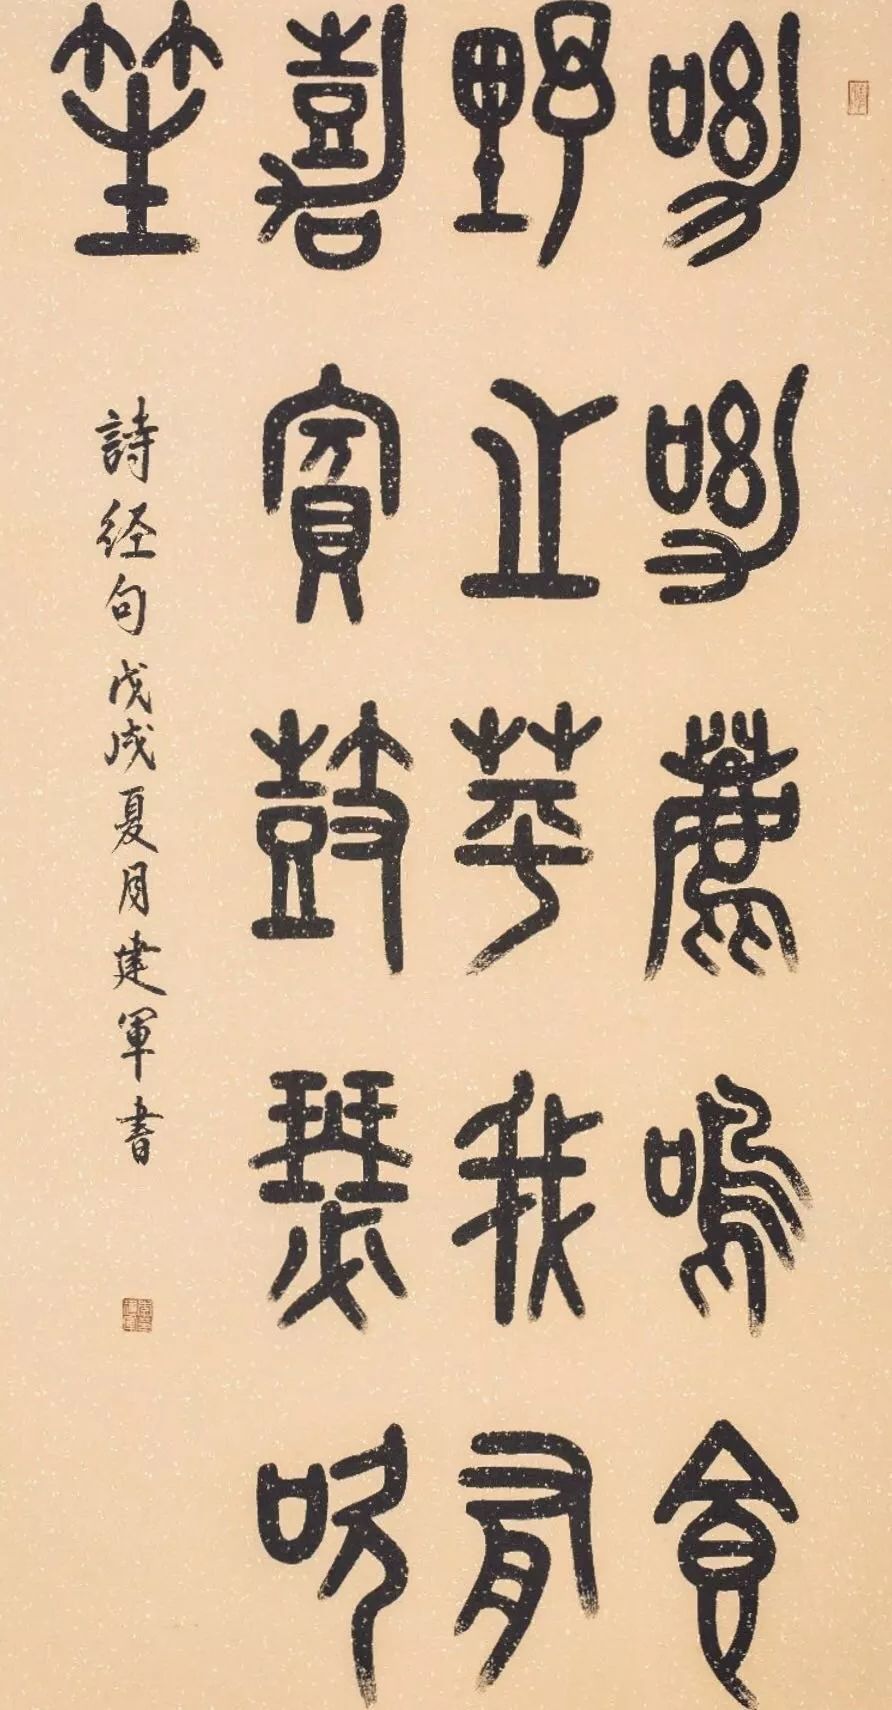 呦呦鹿鳴食
野之苹我有
嘉賓鼓瑟吹
笙
詩経句戊戌夏月建軍書